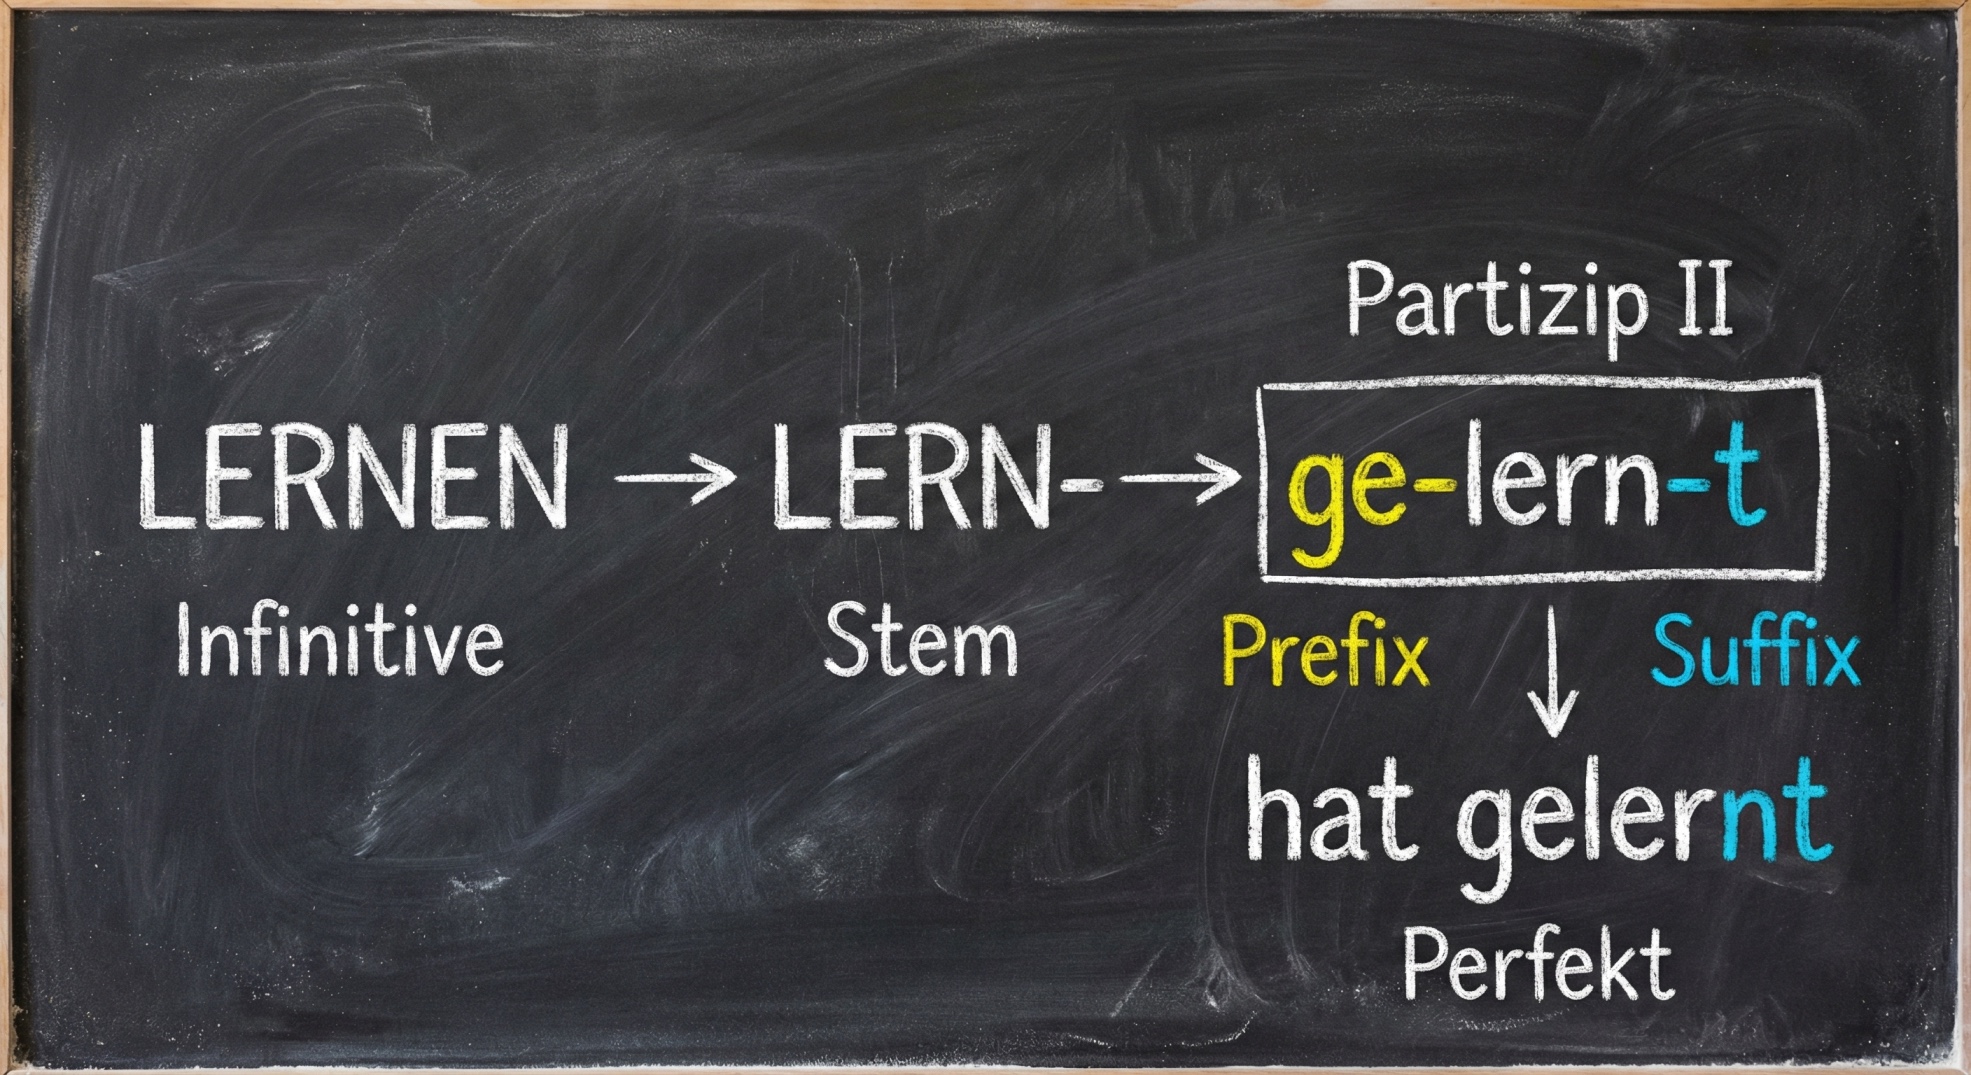 Partizip II
LERNEN → LERN- → ge-lern-t
Infinitive Stem Prefix Suffix
hat gelernt
Perfekt